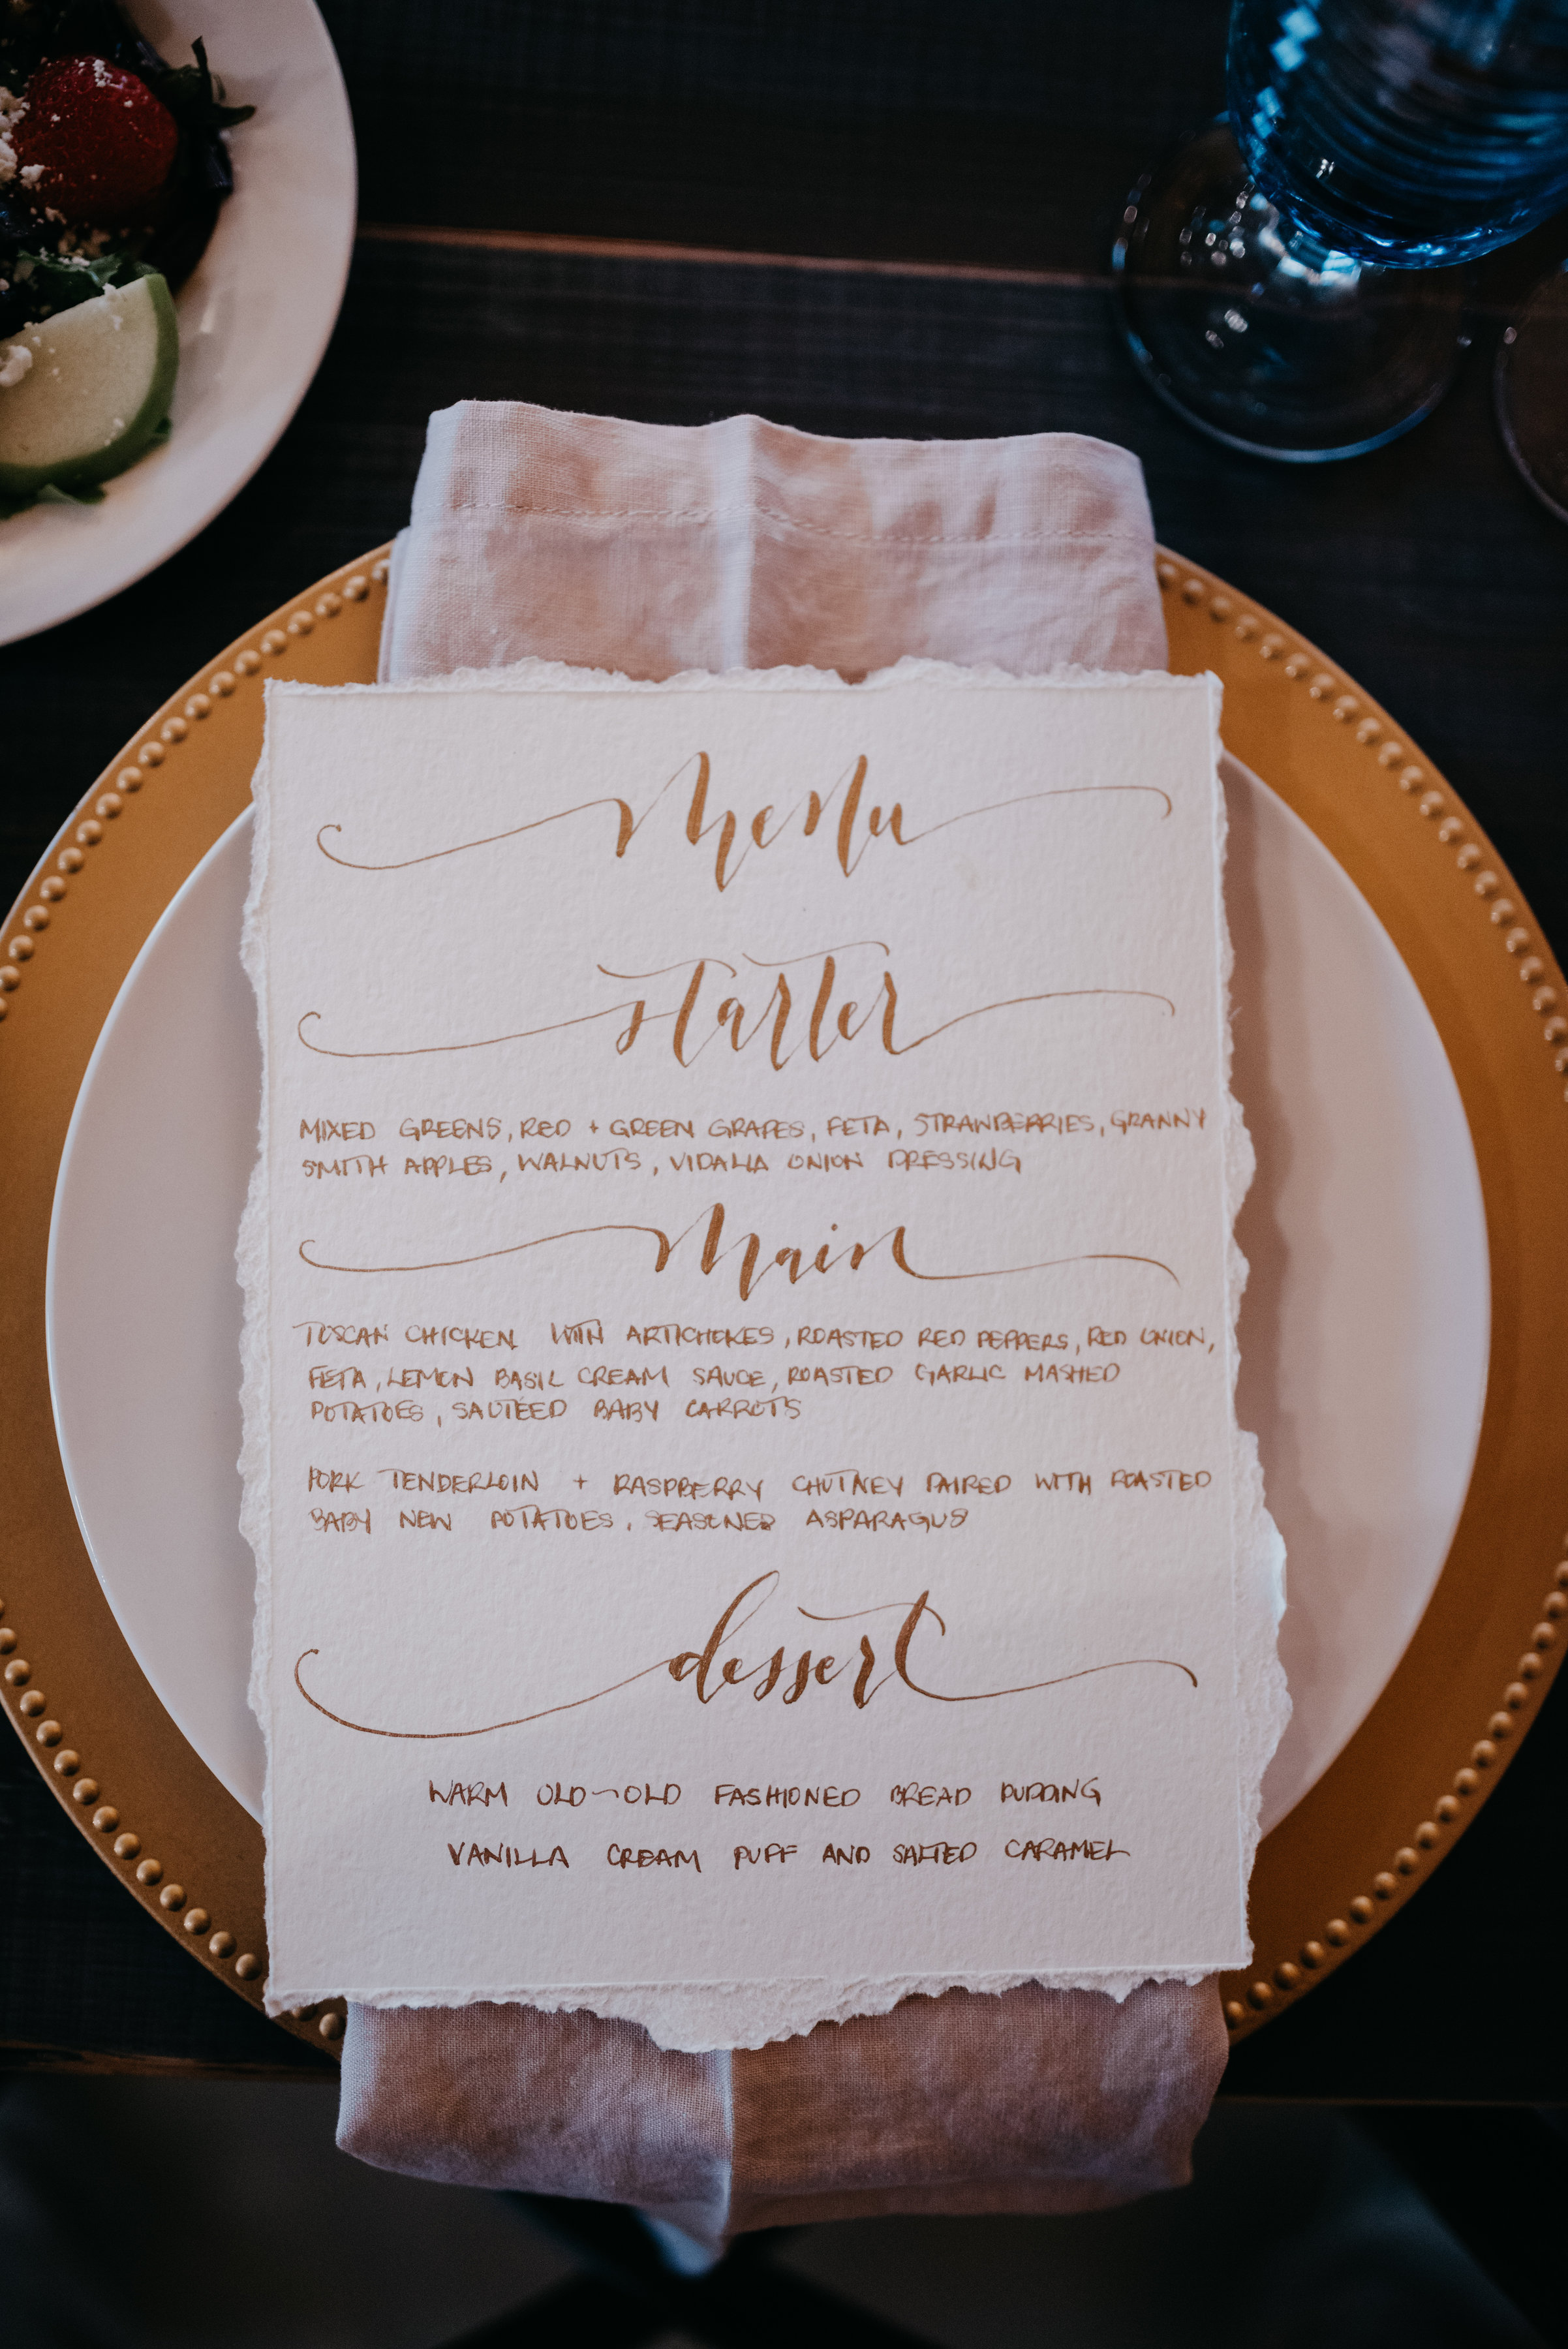 Menu
starter
MIXED GREENS, RED + GREEN GRAPES, FETA, STRAWBERRIES, GRANNY
SMITH APPLES, WALNUTS, VIDALIA ONION DRESSING
Main
TUSCAN CHICKEN WITH ARTICHOKES, ROASTED RED PEPPERS, RED ONION,
FETA, LEMON BASIL CREAM SAUCE, ROASTED GARLIC MASHED
POTATOES, SAUTEED BABY CARROTS
PORK TENDERLOIN + RASPBERRY CHUTNEY PAIRED WITH ROASTED
BABY NEW POTATOES, SEASONED ASPARAGUS
dessert
WARM OLD-OLD FASHIONED BREAD PUDDING
VANILLA CREAM PUFF AND SALTED CARAMEL